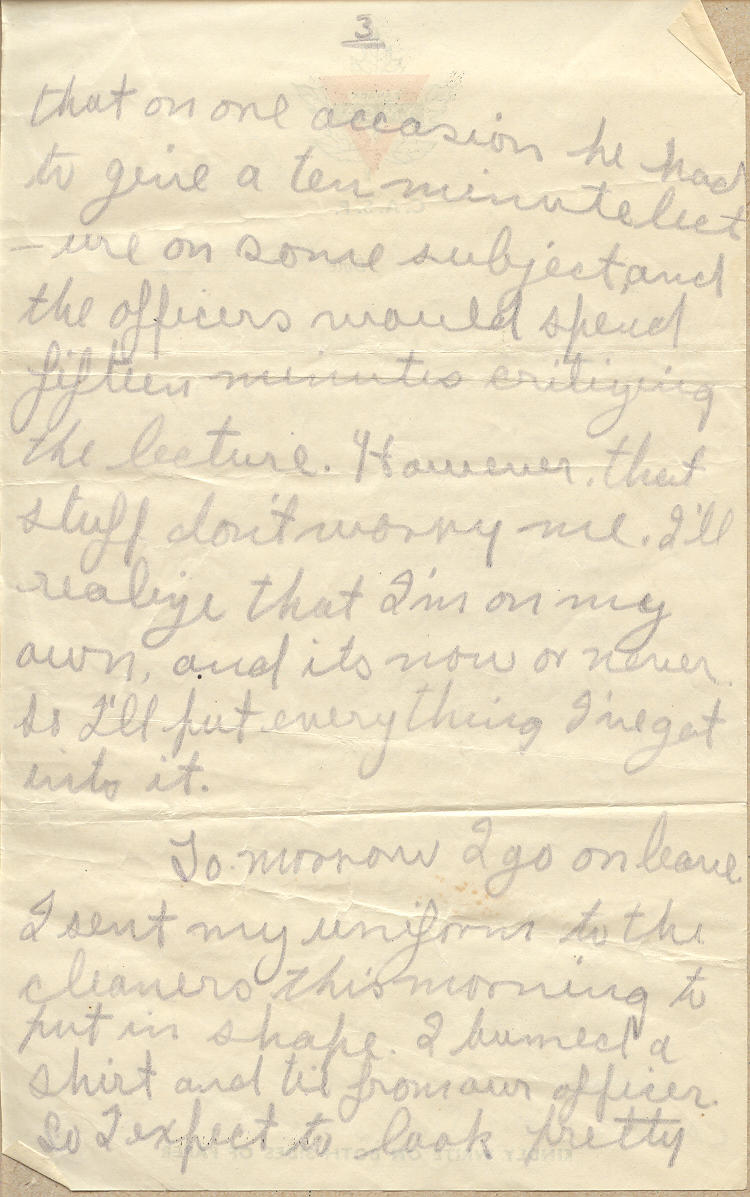 3
that on one occasion he had
to give a ten minute lect
- ure on some subject, and
the officers would spend
fifteen minutes critizing
the lecture. However, that
stuff don't worry me. I'll
realize that I'm on my
own, and its now or never
so I'll put everything I've got
into it.
To.morrow I go on leave.
I sent my uniform to the
cleaners this morning to
put in shape. I bumed a
shirt and tie from our officer.
So I expect to look pretty
KINDLY WRITE ON BOTH SIDES OF PAPER